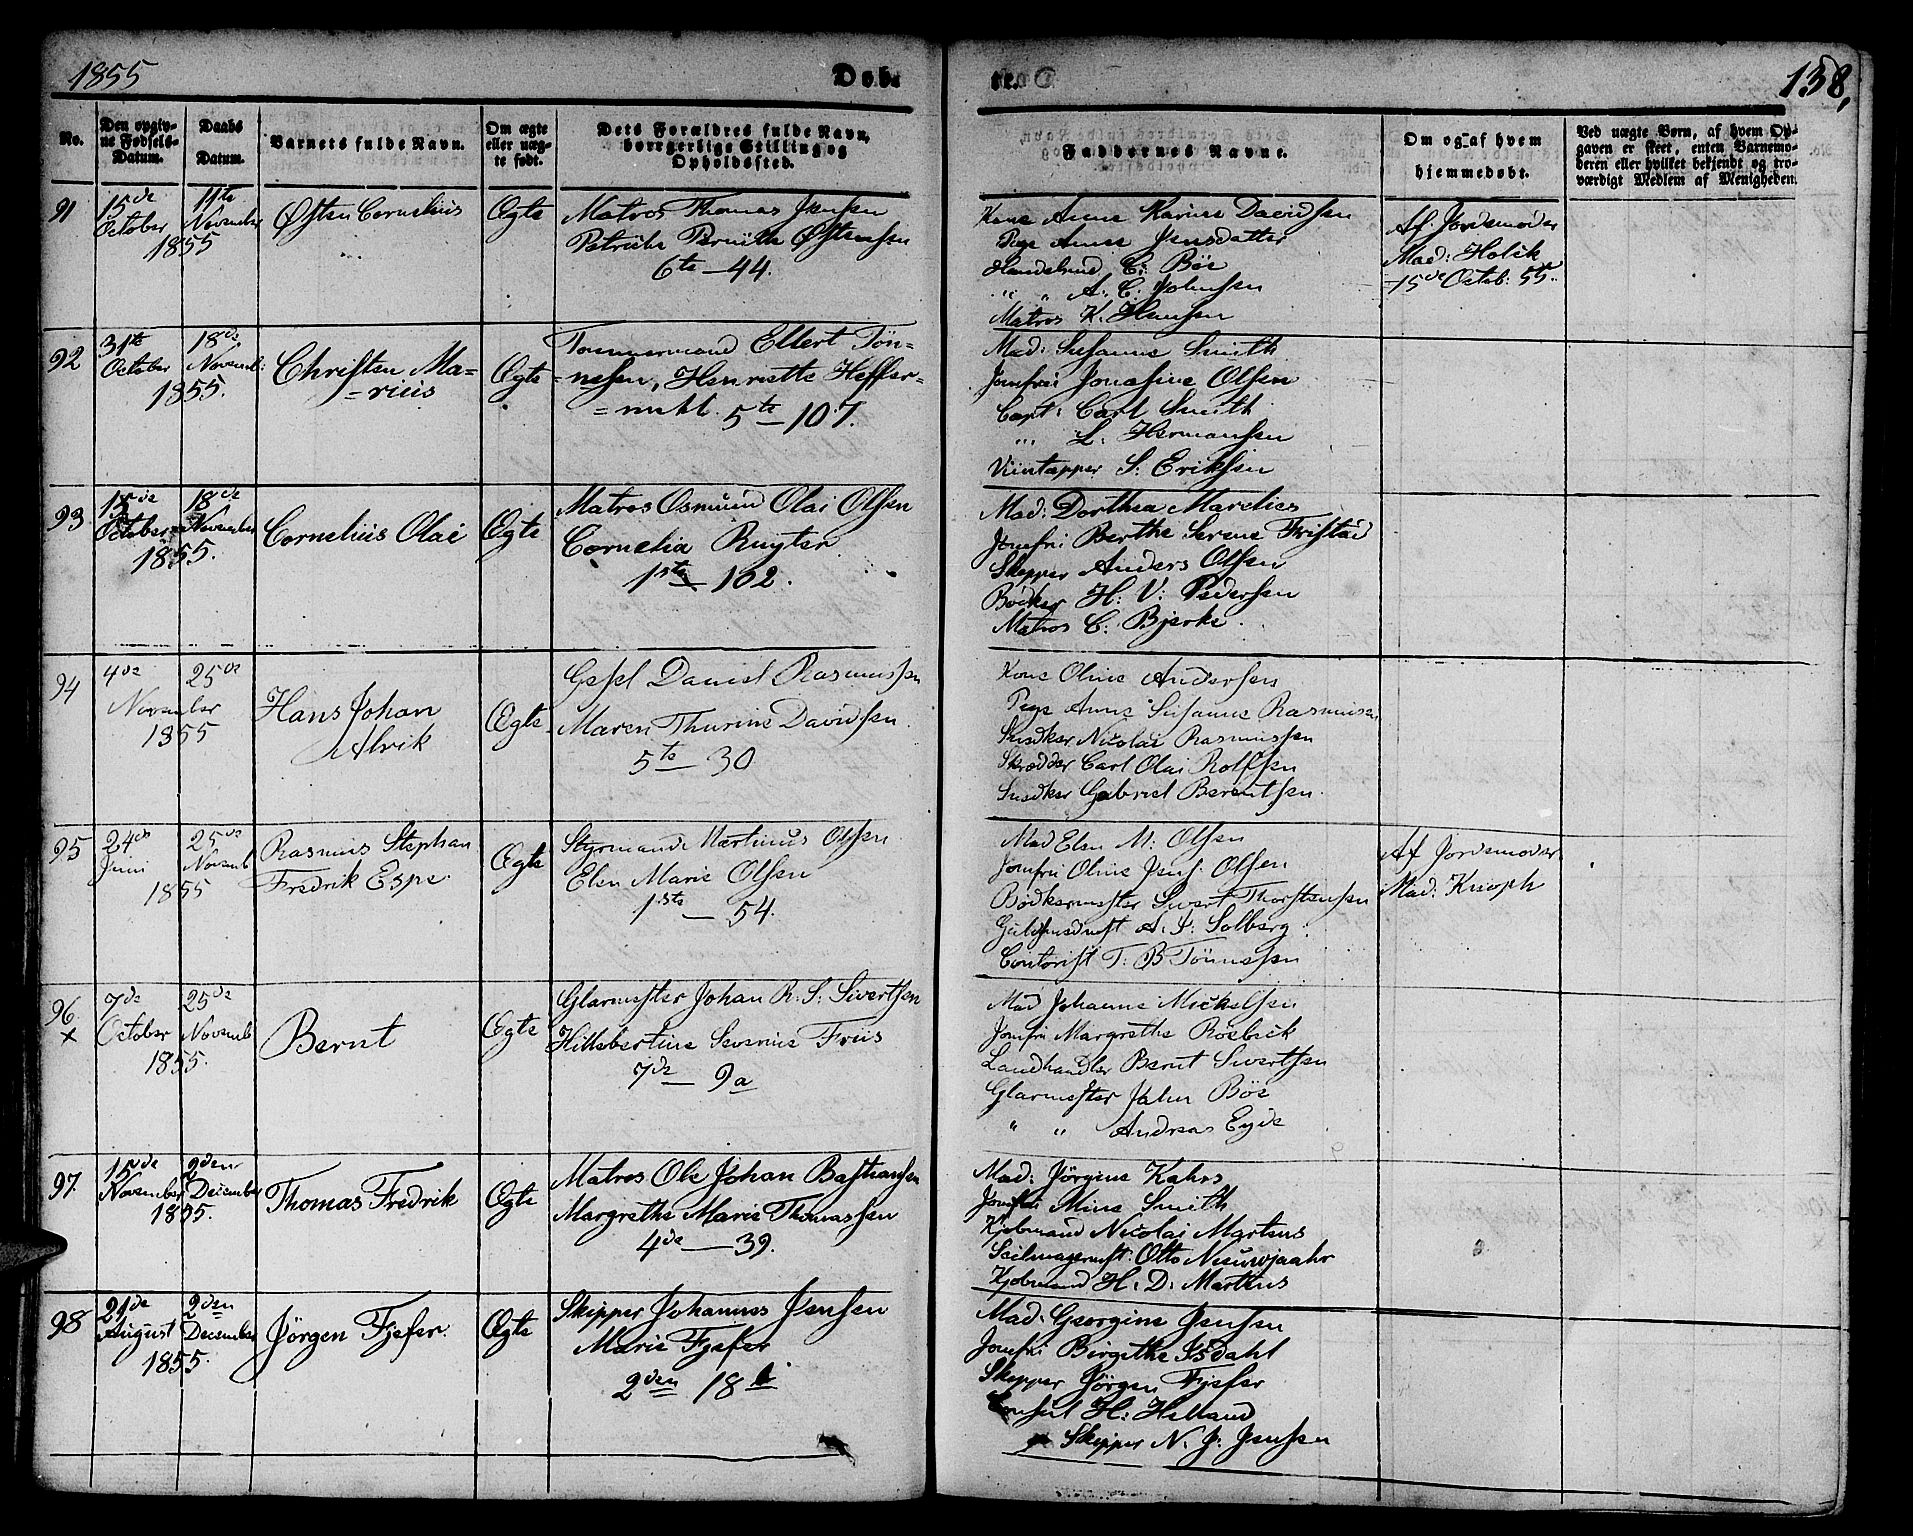 1855
Døb-
te.
138,
No.
Den opgiv-
ne Fødsels-
Datum.
Daabs
Datum.
Barnets fulde Navn.
Om ægte
eller uæg-
te født.
Dets Forældres fulde Navn,
borgerlige Stilling og
Opholdsfted.
Faddernes Navne.
Om og af hvem
hjemmedøbt.
Ved uægte Børn, af hvem Op-
gaven er skeet, enten Barnemo-
deren eller hvilket bekjendt og tro-
værdigt Medlem af Menigheden.
91
15de
October
11te
November
1855
Østen Cornelius
Ægte
Matros Thomas Jensen
Østensen
6te — 44.
Kone Anne Karine Davidsen
Pige Anne Jensdatter
C: Böe
" " A: C: Johnsen
Matros K. Hansen
Af Jordemoder
Mad: Holck
15de Octob: 55.
92
31te
October
18de
Novemb:
1855.
Christen Ma=
=rius
Ægte
Tømmermand Ellert Tön=
=nesen, Henriette Heffer=
=mehl. 5te — 107.
Mad: Susanne Smith
Jomfru Jonasine Olsen
Capt: Carl Smith
" L. Hermansen
Viintapper S: Eriksen
93
15de
October
18de
November
1855.
Cornelius Olai
Ægte
Matros Osmund Olai Olsen
Cornelia Ruyter
1ste — 102.
Mad: Dorthea Marelies
Jomfru Berthe Serene Fristad
Skipper Anders Olsen
Bödker H: V: Pedersen
Matros C: Bjerke.
94
4de
25de
November
1855
Hans Johan
Alrik
Ægte
Gesel Daniel Rasmussen
Maren Thurine Davidsen.
5te — 30
Kone Oline Andersen
Pige Anne Susanne Rasmussen
Snedker Nicolai Rasmussen
Skrædder Carl Olai Rolfsen
Snedker Gabriel Berentsen.
95
24de
Juni
25de
Novemb
1855
Rasmus Stephan
Fredrik Espe.
Ægte
Styrmand Martinus Olsen
Elen Marie Olsen
1ste — 54.
Mad Elen M: Olsen
Jomfru Oline Jens. Olsen
Bödkermester Sivert Thorstensen
A. J: Solberg.
Contorist T: B Tönnesen
Af Jordemoder
Mad: Knoph
96
×
7de
October
25de
Novemb
1855.
Bernt
Ægte
Glarmester Johan R. S: Sivertsen
Hillebertine Severine Friis
7de — 9a
Mad Johanne Mickelsen
Jomfru Margrethe Roebeck
Landhandler Bernt Sivertsen
Glarmester John Böe
" " Andreas Eyde
97.
15de
November
2den
December
1855.
Thomas Fredrik
Ægte
Matros Ole Johan Bastiansen
Margrethe Marie Thomassen
4de — 39.
Mad: Jörgine Kahrs
Jomfru Mine Smith
Kjöbmand Nicolai Martens
Seilmagermst: Otto Neuwjaahr
Kjöbmand H: D: Martens
98
21de
August
2den
December
1855.
Jörgen Fjefer.
Ægte
Skipper Johannes Jensen
Marie Fjefer
2den 18 b
Mad: Georgine Jensen
Jomfru Birgithe Isdahl
Skipper Jörgen Fjefer
Consul H: Helland
Skipper N. J: Jensen